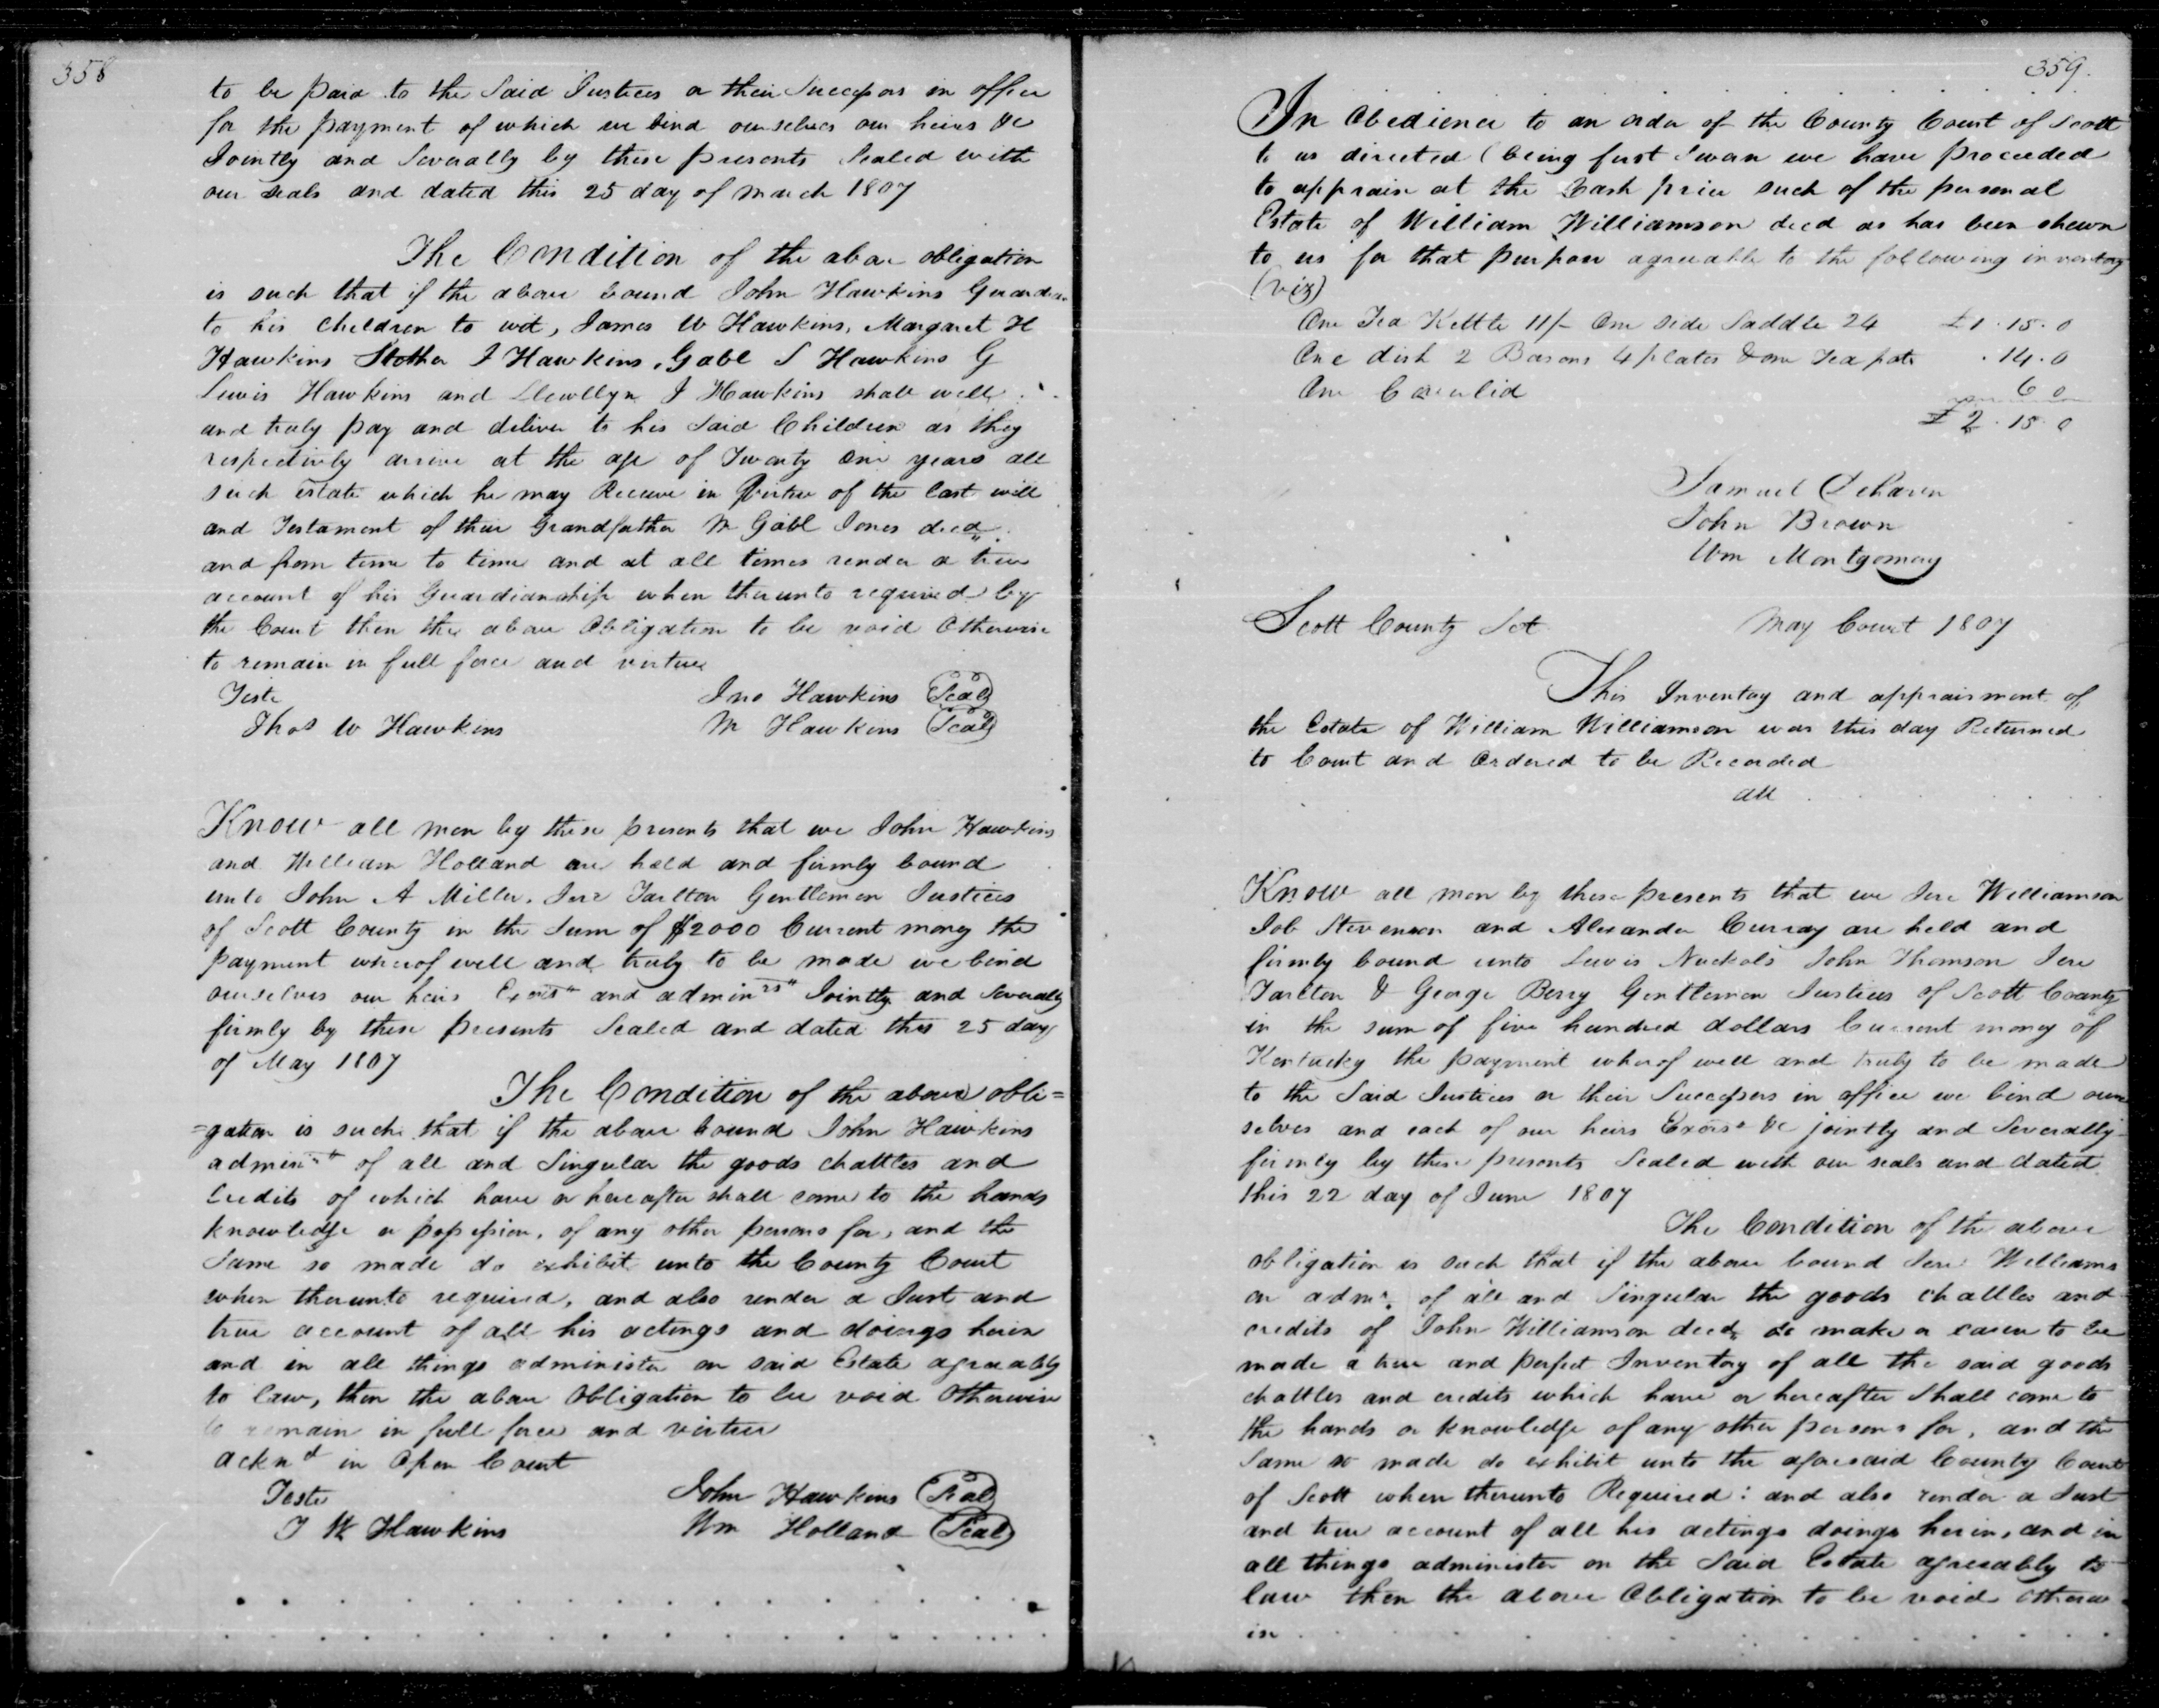 358
to be paid to the Said Justices or their Successors in office
for the payment of which we bind ourselves our heirs &c
Jointly and Severally by these presents Sealed with
our seals and dated this 25 day of march 1807
The Condition of the above obligation
is such that if the above bound John Hawkins Guardian
to his Children to wit, James W Hawkins, Margaret H
Hawkins Strother J Hawkins, Gabl S Hawkins G
Lewis Hawkins and Llewllyn J Hawkins shall well
and truly pay and deliver to his Said Children as they
respectively arrive at the age of Twenty One years all
such estate which he may Receive in Virtue of the last will
and Testament of their Grandfather Mr Gabl Jones decd
and from time to time and at all times render a true
account of his Guardianship when thereunto required by
the Court then the above Obligation to be void Otherwise
to remain in full force and virtue
Teste Jno Hawkins Seal
Thos W Hawkins M Hawkins Seal
Know all men by these presents that we John Hawkins
and William Holland are held and firmly bound
unto John A Miller, Jere Tarlton Gentlemen Justices
of Scott County in the Sum of $2000 Current money the
payment wherof well and truly to be made we bind
ourselves our heirs Exors and adminrs Jointly and Severally
firmly by these presents Sealed and dated this 25 day
of May 1807
The Condition of the above obli=
=gation is such that if the above bound John Hawkins
adminr of all and Singular the goods chattles and
Credits of which have or hereafter shall come to the hands
knowledge or possession, of any other persons for, and the
Same so made do exhibit unto the County Court
when thereunto required, and also render a Just and
true account of all his actings and doings herin
and in all things administer on said Estate agreeably
to law, then the above Obligation to be void Otherwise
to remain in full force and virtue
acknd in Open Court
Teste John Hawkins Seal
J W Hawkins Wm Holland Seal
359.
In Obedience to an order of the County Court of Scott
to us directed (being first Sworn we have proceeded
to apprais at the Cash price such of the personal
Estate of William Williamson decd as has been shewn
to us for that purpose agreeable to the following inventory
(viz)
One Tea Kettle 11/- One side Saddle 24 £1.15.0
One dish 2 Basons 4 plates & one Tea pot .14.0
One 6 0
£2.15.0
Samuel
John Brown
Wm Montgomery
Scott County Sct. May Court 1807
This Inventory and appraisment of
the Estate of William Williamson was this day Returned
to Court and Ordered to be Recorded
att
Know all men by these presents that we Jere Williamson
Job Stevenson and Alexander Curray are held and
firmly bound unto Lewis Nuckols John Thomson Jere
Tarlton & George Berry Gentlemen Justices of Scott County
in the sum of five hundred dollars Current money of
Kentucky the payment wherof well and truly to be made
to the Said Justices or their Successors in office we bind our
selves and each of our heirs Exors &c jointly and Severally
firmly by these presents Sealed with our seals and dated
this 22 day of June 1807
The Condition of the above
obligation is such that if the above bound Jere Williams
on admr. of all and Singular the goods chattles and
credits of John Williamson decd do make or cause to be
made a true and perfect Inventory of all the said goods
chattles and credits which have or hereafter Shall come to
the hands or knowledge of any other persons for, and the
Same so made do exhibit unto the aforesaid County Court
of Scott when therunto Required: and also render a Just
and true account of all his actings doings herin, and in
all things administer on the Said Estate agreeably to
law then the above Obligation to be void otherw
ise